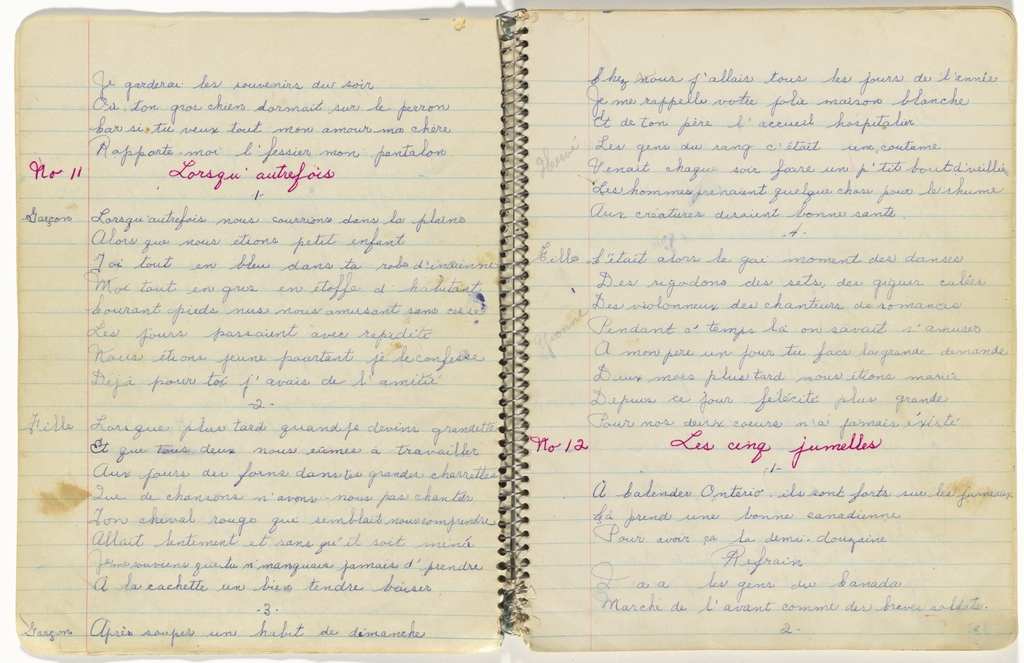 Je garderai les souvenirs du soir
Où ton gros chien dormait sur le perron
Car si tu veux tout mon amour ma chère
Rapporte moi l'fessier mon pantalon
No 11 Lorsqu'autrefois
1-
Garçon Lorsqu'autrefois nous courrions dans la plaine
Alors que nous étions petit enfant
Toi tout en bleu dans ta robe d'indienne
Moi tout en gris en étoffe d'habitant
Courant pieds nus nous amusant sans cesse
Les jours passaient avec rapidité
Nous étions jeune pourtant je le confesse
Déjà pour toi j'avais de l'amitié
-2-
Fille Lorsque plus tard quand je devins grandette
Et que tous deux nous eûmes à travailler
Aux jours des foins dans tes grandes charrettes
Que de chansons n'avons-nous pas chantés
Ton cheval rouge qui semblait nous comprendre
Allait lentement et sans qu'il soit mené
Je me souviens que tu n'manquais jamais d'prendre
À la cachette un bien tendre baiser
-3-
Garçon Après souper un habit de dimanche
Chez nous j'allais tous les jours de l'année
Je me rappelle votre jolie maison blanche
Et de ton père l'accueil hospitalier
Les gens du rang c'était une coutume
Venait chaque soir faire un p'tit bout d'veillée
Les hommes prenaient quelque chose pour le rhume
Aux créatures disaient bonne santé
-4-
Fille C'était alors le gai moment des danses
Des rigodons des sets, des gigues calées
Des violonneux des chanteurs de romances
Yvonne
Pendant c'temps là on savait s'amuser
À mon père un jour tu fais la grande demande
Deux mois plus tard nous étions mariés
Depuis ce jour félicité plus grande
Pour nos deux coeurs n'a jamais éxisté
No 12 Les cinq jumelles
-1-
À Calender Ontério, ils sont forts sur les jumeaux
Ça prend une bonne canadienne
Pour avoir ça la demi-douzaine
Refrain
Y a a les gens du Canada
Marche de l'avant comme des braves soldats.
2-